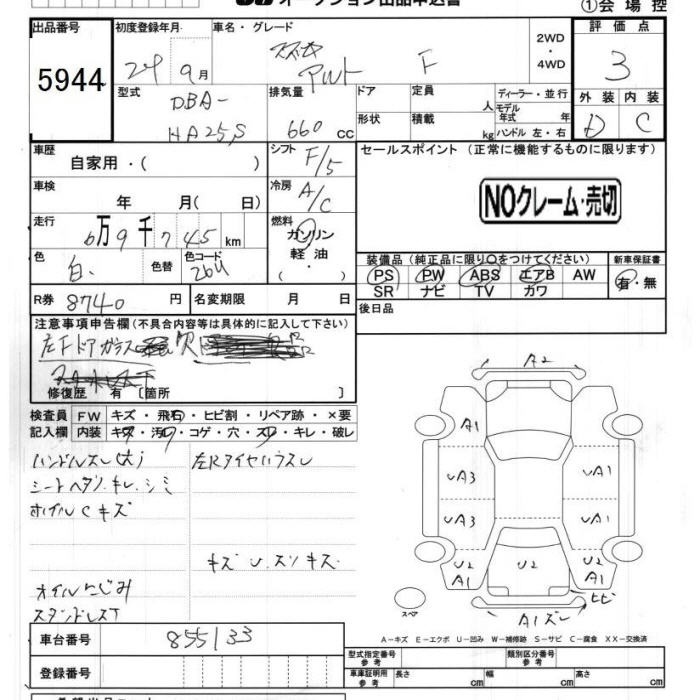 オークション出品申込書
①会場控
出品番号 初度登録年月 車名・グレード 評価点
5944
24 9月
スズキ アルト F
2WD
・
4WD
3
型式 排気量 ドア 定員 ディーラー・並行 外装 内装
DBA-
HA25S
660 cc
人 モデル年式 年
形状 積載 kg ハンドル 左・右
D C
車歴 シフト セールスポイント (正常に機能するものに限ります)
自家用・( )
F/5
車検 冷房
年 月( 日)
A/C
NOクレーム・売切
走行 燃料
6万9千745km
ガソリン
軽油
・
色 色替 色コード
白 26U
( )
装備品(純正品に限り○をつけてください) 新車保証書
PS PW ABS エアB AW 有・無
SR ナビ TV カワ
R券 8740円 名変期限 月 日
後日品
注意事項申告欄(不具合内容等は具体的に記入して下さい)
左Fドアガラス
修復歴 有 [箇所 ]
検査員 FW キズ・飛石・ヒビ割・リペア跡・×要
記入欄 内装 キズ・汚レ・コゲ・穴・スレ・キレ・破レ
ハンドルスレ(大) 左Rタイヤハウスレ
シートヘタリ.キレ.シミ
ホイルCキズ
キズ U.スリキズ.
オイルにじみ
A2
A1
UA3 UA1
UA3 UA1
U2 A1 U2 U2 A1
ヒビ
スペア
A1ズレ
A-キズ E-エクボ U-凹み W-補修跡 S-サビ C-腐食 XX-交換済
車台番号 855133
型式指定番号 参考 類別区分番号 参考
登録番号
車庫証明用 参考 長さ cm 幅 cm 高さ cm